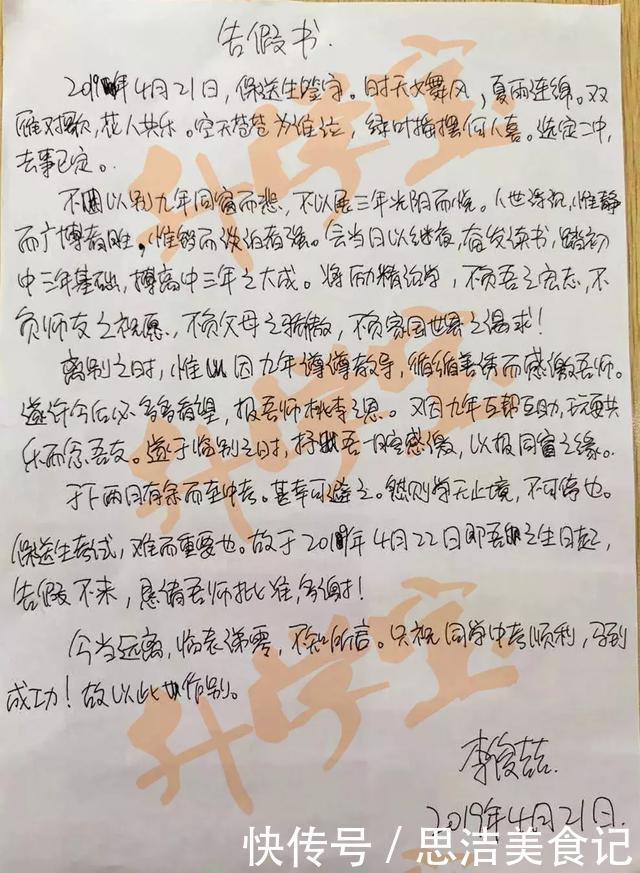 告假书.
2019年4月21日，保送生签字。时天女舞风，夏雨连绵。双
雁对携飞，花人共乐。空天苍苍为谁泣，绿叶摇摆何人喜。选定二中，
去事已定。
不因以别九年同窗而悲，不以展三年光阴而悦。人世浮沉，惟静
而广博者胜，惟智而淡泊者强。会当日以继夜，奋发读书，踏初
中三年基础，搏高中三年之大成。将励精治学，不负吾之宏志，不
负师友之祝愿，不负父母之骄傲，不负家国世界之渴求！
离别之时，惟以因九年谆谆教导，循循善诱而感激吾师。
遂许今后必多多看望，报吾师桃李之恩。又因九年互帮互助，玩耍共
乐而念吾友。遂于临别之时，抒吾一腔感激，以报同窗之缘。
于下两月有余而至中考。甚幸可避之。然则学无止境，不可停也。
保送生考试，难而重要也。故于2019年4月22日即吾之生日起，
告假不来，恳请吾师批准，多谢！
今当远离，临表涕零，不知所言。只祝同学中考顺利，马到
成功！故以此作别。
李俊喆
2019年4月21日.
升学宝
升学宝
升学宝
快传号／思洁美食记